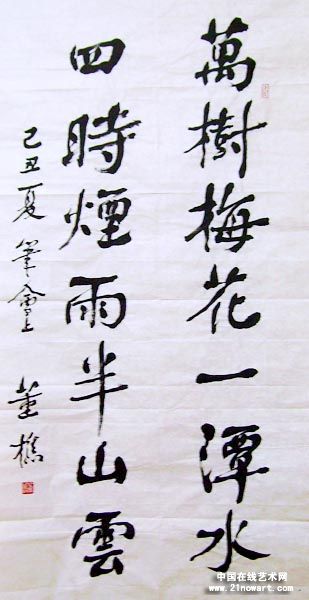 萬樹梅花一潭水
四時煙雨半山雲
己丑夏筆會上
董樵
中国在线艺术网
www.21nowart.com